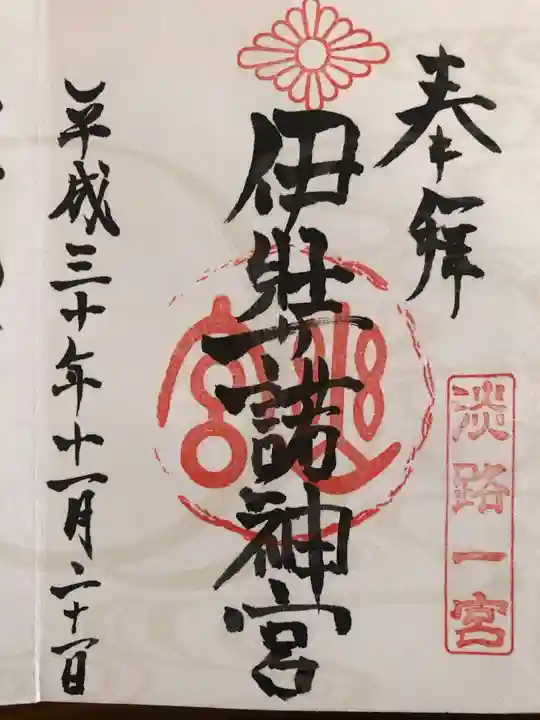 奉拝
淡路一宮
伊弉諾神宮
平成三十年十一月二十一日